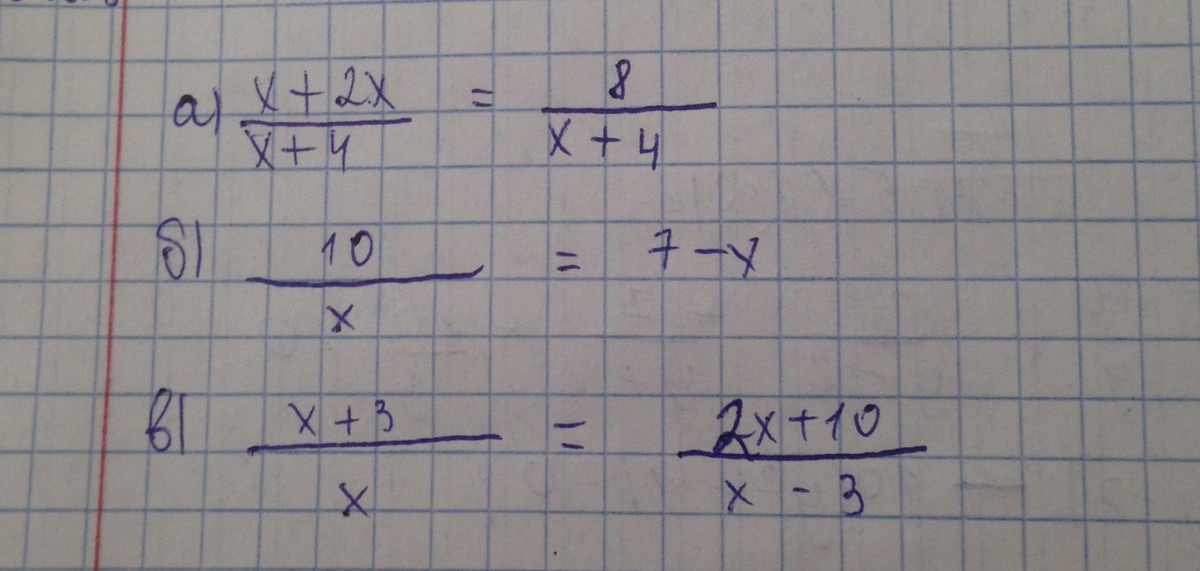 а) x + 2x / x + 4 = 8 / x + 4
б) 10 / x = 7 - x
в) x + 3 / x = 2x + 10 / x - 3